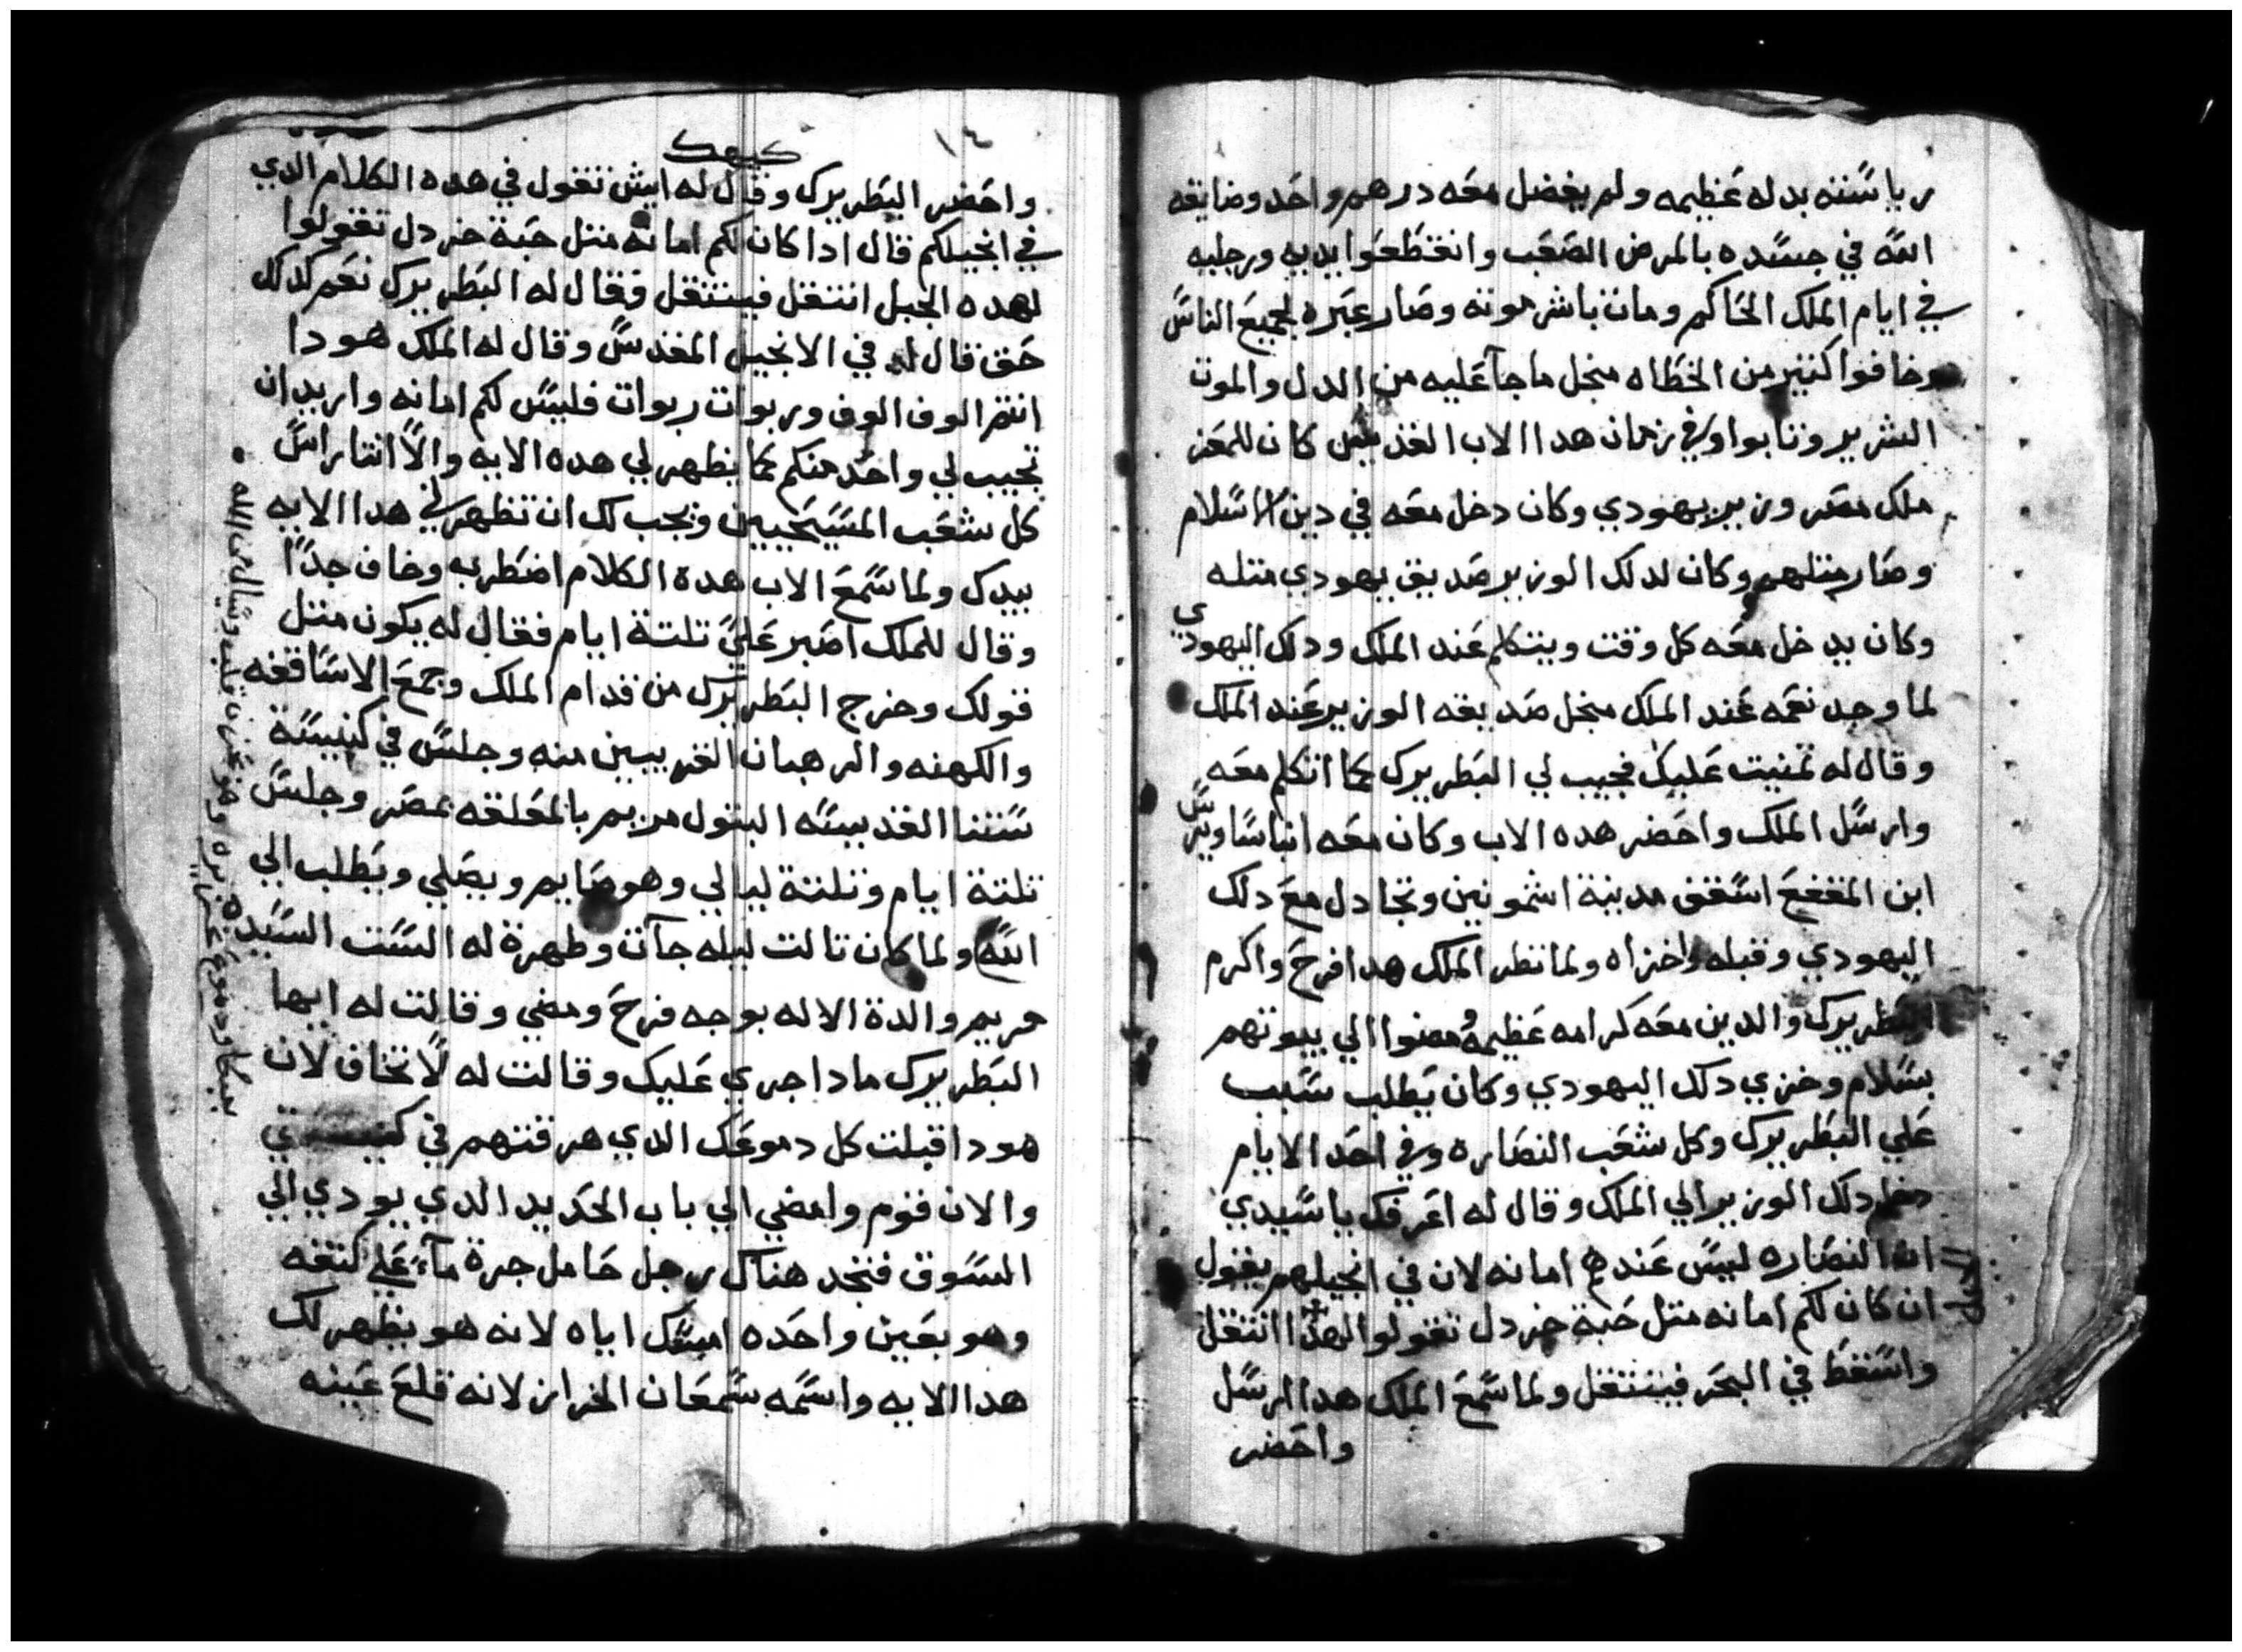 رياسته بدله عظيمه ولم يفضل معه درهم واحد وضايقه
الله في جسده بالمرض الصعب وانقطعوا يديه ورجليه
في ايام الملك الحاكم ومات باشر موته وصار عبره لجميع الناس
وخافوا كتير من الخطاه منجل ما جآ عليه من الدل والموت
الشرير وتابوا وفي زمان هدا الاب القديس كان للمعز
ملك مصر وزير يهودي وكان دخل معه في دين الاسلام
وصار متلهم وكان لدلك الوزير صديق يهودي متله
وكان يدخل معه كل وقت ويتكلم عند الملك ودلك اليهودي
لما وجد نعمه عند الملك منجل صديقه الوزير عند الملك
وقال له تمنيت عليك تجيب لي البطريرك كما اتكلم معه
وارسل الملك واحضر هده الاب وكان معه انبا ساويرس
ابن المقفع اسقف مدينة اشمونين وتجادل مع دلك
اليهودي وقبله واخزاه ولما نظر الملك هدا فرح واكرم
البطريرك والدين معه كرامه عظيمه ومضوا الي بيوتهم
بسلام وخزي دلك اليهودي وكان يطلب سبب
علي البطريرك وكل شعب النصاره وفي احد الايام
دخل دلك الوزير الي الملك وقال له اعرفك يا سيدي
ان النصاره ليس عندهم امانه لان في انجيلهم يقول
ان كان لكم امانه متل حبة خردل تقولوا لهدا انتقل
واسقط في البحر فينتقل ولما سمع الملك هدا ارسل
واحضر
١٤
كيهك
واحضر البطريرك وقال له ايش تقول في هده الكلام الدي
في انجيلكم قال ادا كان لكم امانه متل حبة خردل تقولوا
لهده الجبل انتقل فينتقل فقال له البطريرك نعم كدلك
حق قال له في الانجيل المقدس وقال له الملك هودا
انتم الوف الوف وربوات ربوات فليس لكم امانه واريد ان
تجيب لي واحد منكم كما يظهر لي هده الايه والا انت راس
كل شعب المسيحيين ويجب لك ان تظهر لي هدا الايه
بيدك ولما سمع الاب هدة الكلام اضطرب وخاف جدا
وقال للملك اصبر علي تلتة ايام فقال له يكون متل
قولك وخرج البطريرك من قدام الملك وجمع الاساقفه
والكهنه والرهبان القريبين منه وجلس في كنيسة
ستنا القديسه البتول مريم بالمعلقه بمصر وجلس
تلتة ايام وتلتة ليالي وهو صايم ويصلي ويطلب الي
الله ولما كان تالت ليله جآت وظهرة له الست السيده
مريم والدة الاله بوجه فرح ومضي وقالت له ايها
البطريرك مادا جري عليك وقالت له لا تخاف لان
هودا قبلت كل دموعك الدي هرقتهم في كنيستي
والان قوم وامضي الي باب الحديد الدي يودي الي
السوق فتجد هناك رجل حامل جرة مآء علي كتفه
وهو بعين واحده امسك اياه لانه هو يظهر لك
هدا الايه واسمه سمعان الخراز لانه قلع عينه